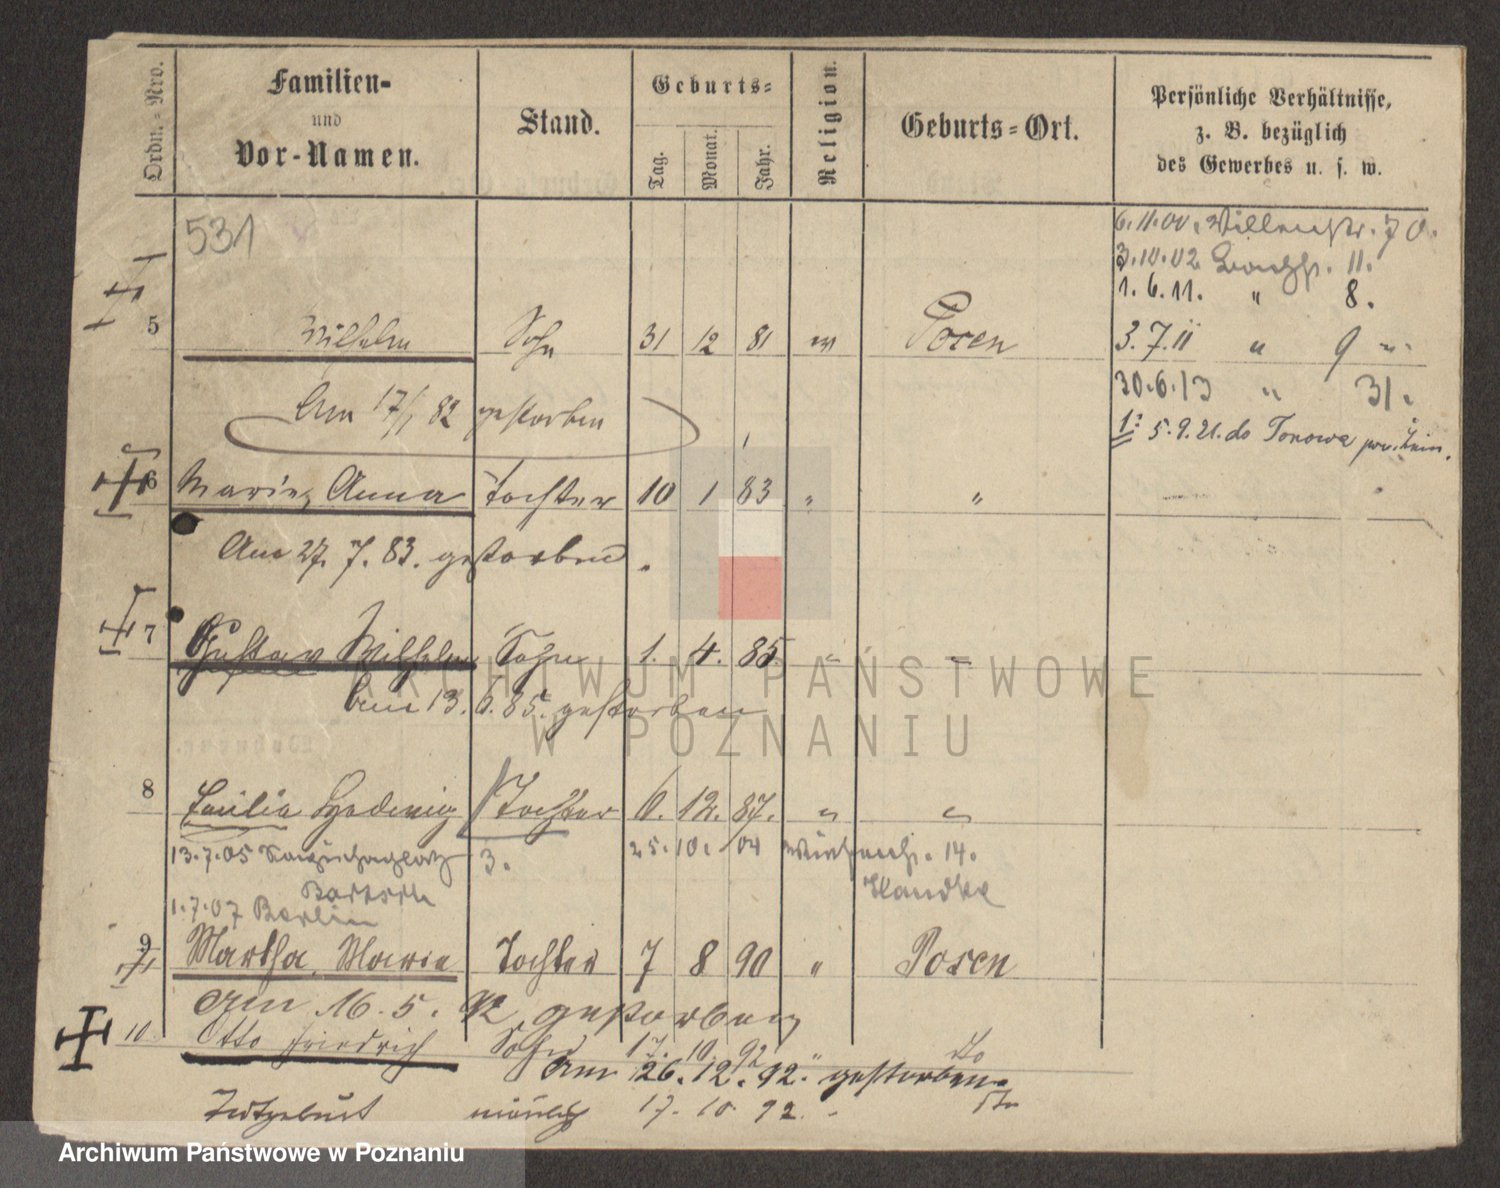 Ordn.-Nro.
Familien-
und
Vor-Namen.
Stand.
Geburts-
Tag.
Monat.
Jahr.
Religion.
Geburts-Ort.
Persönliche Verhältnisse,
z. B. bezüglich
des Gewerbes u. s. w.
531
6.11.00. 70.
3.10.02 11.
1.6.11. " 8.
5 Wilhelm Sohn 31 12 81 Posen
3.7.11 " 9
Am 17/1 82 gestorben
30.6.13 " 31.
5.9.21. do
6 Anna Tochter 10 1 83 " "
Am 27. 7. 83. gestorben.
7 Gustav Wilhelm Sohn 1. 4. 85 " "
Am 13. 6. 85. gestorben
8 Hedwig Tochter 6. 12. 87. " "
13.7.05 3. 25.10. 04 14.
1.7.07 Berlin
9 Martha Maria Tochter 7 8 90 " Posen
Am 16. 5. 92 gestorben
10. Otto Friedrich Sohn 17. 10. 92 " dto
Am 26. 12. 92. gestorben
Totgeburt männlich 17. 10. 92. dto
ARCHIWUM PAŃSTWOWE
W POZNANIU
Archiwum Państwowe w Poznaniu